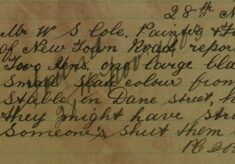 28th N
Mr W S Cole, Painter &
of New Town Road repor
Two Uns. one large bla
Small Slate colour from
Stable, in Dane street, h
they might have str
Someone's shut them
Pc 20